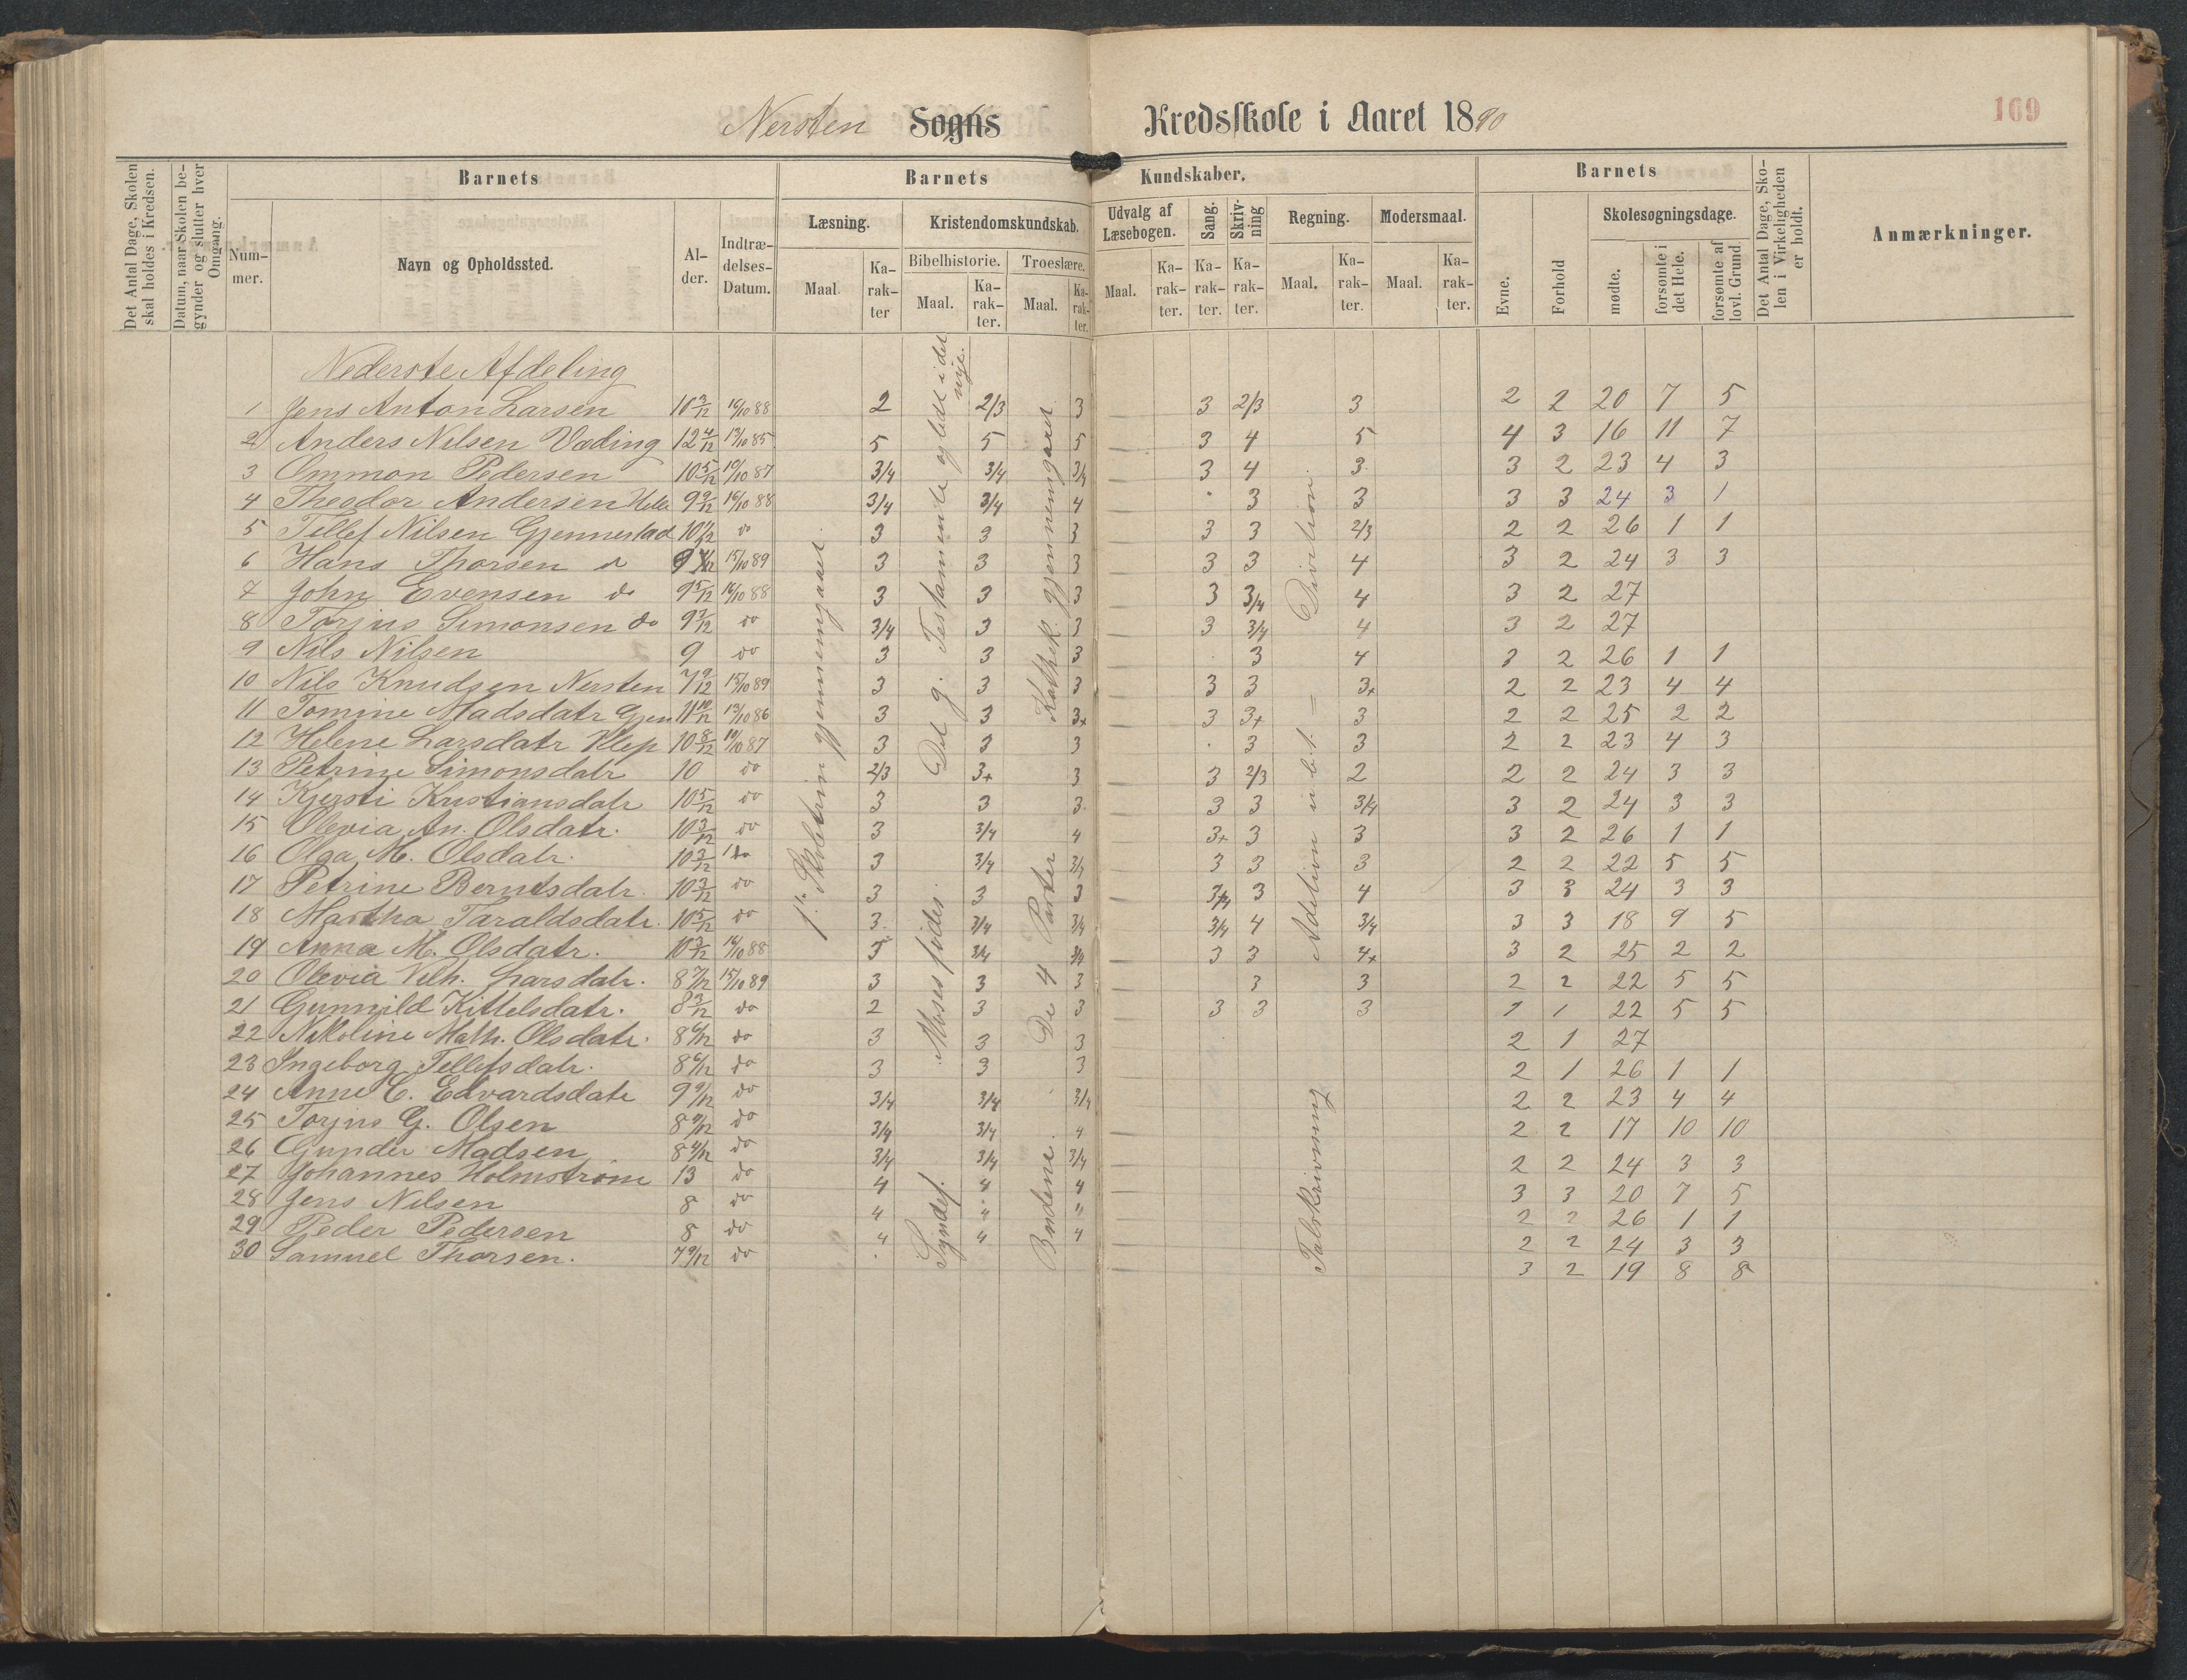 Nersten Sogns Kredsskole i Aaret 1890
169
Det Antal Dage, Skolen skal holdes i Kredsen.
Datum, naar Skolen begynder og slutter hver Omgang.
Barnets
Nummer.
Navn og Opholdssted.
Alder.
Indtrædelses-Datum.
Barnets Kundskaber.
Læsning.
Maal
Karakter
Kristendomskundskab.
Bibelhistorie.
Maal.
Karakter.
Troeslære.
Maal.
Karakter.
Udvalg af Læsebogen.
Maal.
Karakter.
Sang.
Karakter.
Skrivning
Karakter.
Regning.
Maal.
Karakter.
Modersmaal.
Maal.
Karakter.
Barnets
Evne.
Forhold
Skolesøgningsdage.
mødte.
forsømte i det Hele.
forsømte af lovl. Grund
Det Antal Dage, Skolen i Virkeligheden er holdt.
Anmærkninger.
Nederste Afdeling
1 Jens Anton Larsen 10 3/12 16/10 88 2 2/3 3 — 3 2/3 3 2 2 20 7 5
2 Anders Nilsen Væding 12 4/12 13/10 85 5 5 5 — 3 4 5 4 3 16 11 7
3 Ommon Pedersen 10 5/12 10/10 87 3/4 3/4 3/4 — 3 4 3 3 2 23 4 3
4 Theodor Andersen 9 9/12 16/10 88 3/4 3/4 4 — 3 3 3 3 24 3 1
5 Tellef Nilsen Gjennestad do 3 3 3 — 3 3 2/3 2 2 26 1 1
6 Hans Thorsen 15/10 89 3 3 3 — 3 3 4 3 2 24 3 3
7 John Evensen do 9 5/12 16/10 88 3 3 3 — 3 3/4 4 3 2 27
8 Torjus Simonsen do 9 3/12 do 3/4 3 3 — 3 3/4 4 3 2 27
9 Nils Nilsen 9 do 3 3 3 — 3 4 3 2 26 1 1
10 Nils Knudsen Nersten 7 9/12 15/10 89 3 3 3 — 3 3 3+ 2 2 23 4 4
11 Tomine Madsdatr Gjen 11 10/12 13/10 86 3 3 3+ — 3 3+ 3 2 2 25 2 2
12 Helene Larsdatr Klep 10 8/12 10/10 87 3 3 3 — 3 3 2 2 23 4 3
13 Petrine Simonsdatr 10 do 2/3 3+ 3 — 3 2/3 2 2 2 24 3 3
14 Kjersti Kristiansdatr 10 5/12 do 3 3 3 — 3 3 3/4 3 2 24 3 3
15 Olevia An. Olsdatr. 10 3/12 do 3 3/4 4 — 3+ 3 3 3 2 26 1 1
16 Olga M. Olsdatr. 10 3/12 do 3 3/4 3/4 — 3 3 3 2 2 22 5 5
17 Petrine Berntsdatr. 10 3/12 do 3 3 3 — 3/4 3 4 3 3 24 3 3
18 Martha Taraldsdatr. 10 5/12 do 3 3/4 3/4 — 3/4 4 3/4 3 3 18 9 5
19 Anna M. Olsdatr. 10 3/12 16/10 88 3 3/4 3/4 — 3 3 4+ 3 2 25 2 2
20 Olevia Vilh. Larsdatr. 8 7/12 15/10 89 3 3 3 — 3 3 2 2 22 5 5
21 Gunnild Kittelsdatr. 8 3/12 do 2 3 3 — 3 3 3 1 1 22 5 5
22 Nikoline Math. Olsdatr. 8 6/12 do 3 3 3 — 2 1 27
23 Ingeborg Tellefsdatr. 8 6/12 do 3 3 3 — 2 1 26 1 1
24 Anne C. Edvardsdatr 9 9/12 do 3/4 3/4 3/4 — 2 2 23 4 4
25 Torjus G. Olsen do 3/4 3/4 4 — 2 2 17 10 10
26 Gunder Madsen 8 4/12 do 3/4 3/4 3/4 — 2 2 24 3 3
27 Johannes Holmstrøm 13 do 4 4 4 — 3 3 20 7 5
28 Jens Nilsen 8 do 4 " " — 2 2 26 1 1
29 Peder Pedersen 8 do 4 4 4 — 2 2 24 3 3
30 Samuel Thorsen. 7 9/12 do — 3 2 19 8 8
1ste Skoletrin gjennemgaaet
Syndef. Moses fødes. Det g. Testamente og lidt i det nye.
Bøndene. De 4 Parter Kathek. gjennemgaaet
Talskrivning Adition Division